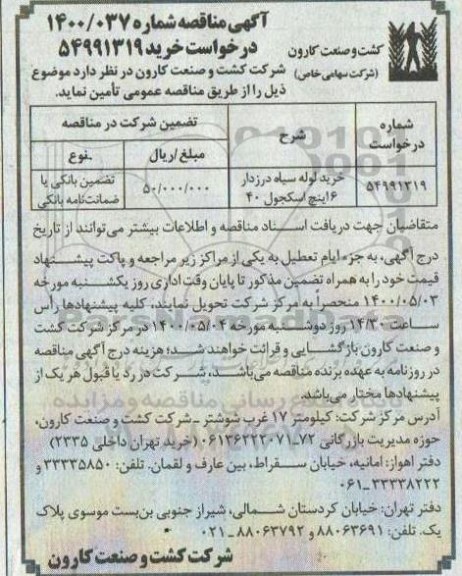 آگهی مناقصه شماره ۱۴۰۰/۰۳۷
درخواست خرید ۵۴۹۹۱۳۱۹
کشت و صنعت کارون
(شرکت سهامی خاص)
شرکت کشت و صنعت کارون در نظر دارد موضوع
ذیل را از طریق مناقصه عمومی تأمین نماید.
شماره درخواست
شرح
تضمین شرکت در مناقصه
مبلغ/ریال
نوع
۵۴۹۹۱۳۱۹
خرید لوله سیاه درزدار
۶ اینچ اسکجول ۴۰
۵۰/۰۰۰/۰۰۰
تضمین بانکی یا
ضمانت‌نامه بانکی
متقاضیان جهت دریافت اسناد مناقصه و اطلاعات بیشتر می‌توانند از تاریخ
درج آگهی، به جزء ایام تعطیل به یکی از مراکز زیر مراجعه و پاکت پیشنهاد
قیمت خود را به همراه تضمین مذکور تا پایان وقت اداری روز یکشنبه مورخه
۱۴۰۰/۰۵/۰۳ منحصراً به مرکز شرکت تحویل نمایند، کلیه پیشنهادها رأس
ساعت ۱۴/۳۰ روز دوشنبه مورخه ۱۴۰۰/۰۵/۰۴ در مرکز شرکت کشت
و صنعت کارون بازگشایی و قرائت خواهند شد؛ هزینه درج آگهی مناقصه
در روزنامه به عهده برنده مناقصه می‌باشد، شرکت در رد یا قبول هر یک از
پیشنهادها مختار می‌باشد.
آدرس مرکز شرکت: کیلومتر ۱۷ غرب شوشتر ـ شرکت کشت و صنعت کارون،
حوزه مدیریت بازرگانی ۷۲ـ۰۶۱۳۶۲۲۲۰۷۱ (خرید تهران داخلی ۲۳۳۵)
دفتر اهواز: امانیه، خیابان سقراط، بین عارف و لقمان. تلفن: ۳۳۳۳۵۸۵۰ و
۳۳۳۳۸۲۲۲ـ۰۶۱
دفتر تهران: خیابان کردستان شمالی، شیراز جنوبی بن‌بست موسوی پلاک
یک. تلفن: ۸۸۰۶۳۶۹۱ و ۸۸۰۶۳۷۹۲ـ۰۲۱
شرکت کشت و صنعت کارون
ParsNamadData